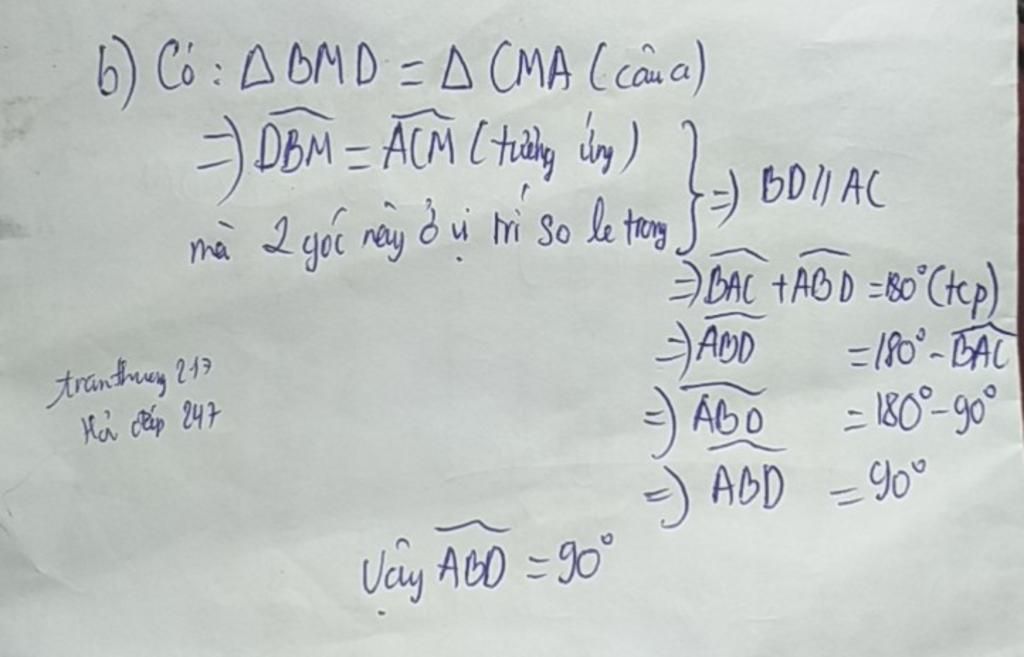 b) Có : Δ BMD = Δ CMA (câu a)
=> DBM = ACM (tương ứng)
mà 2 góc này ở vị trí so le trong } => BD // AC
=> BAC + ABD = 180° (tcp)
=> ABD = 180° - BAC
=> ABD = 180° - 90°
=> ABD = 90°
Vậy ABD = 90°
tranthuong 217
Hỏi đáp 247